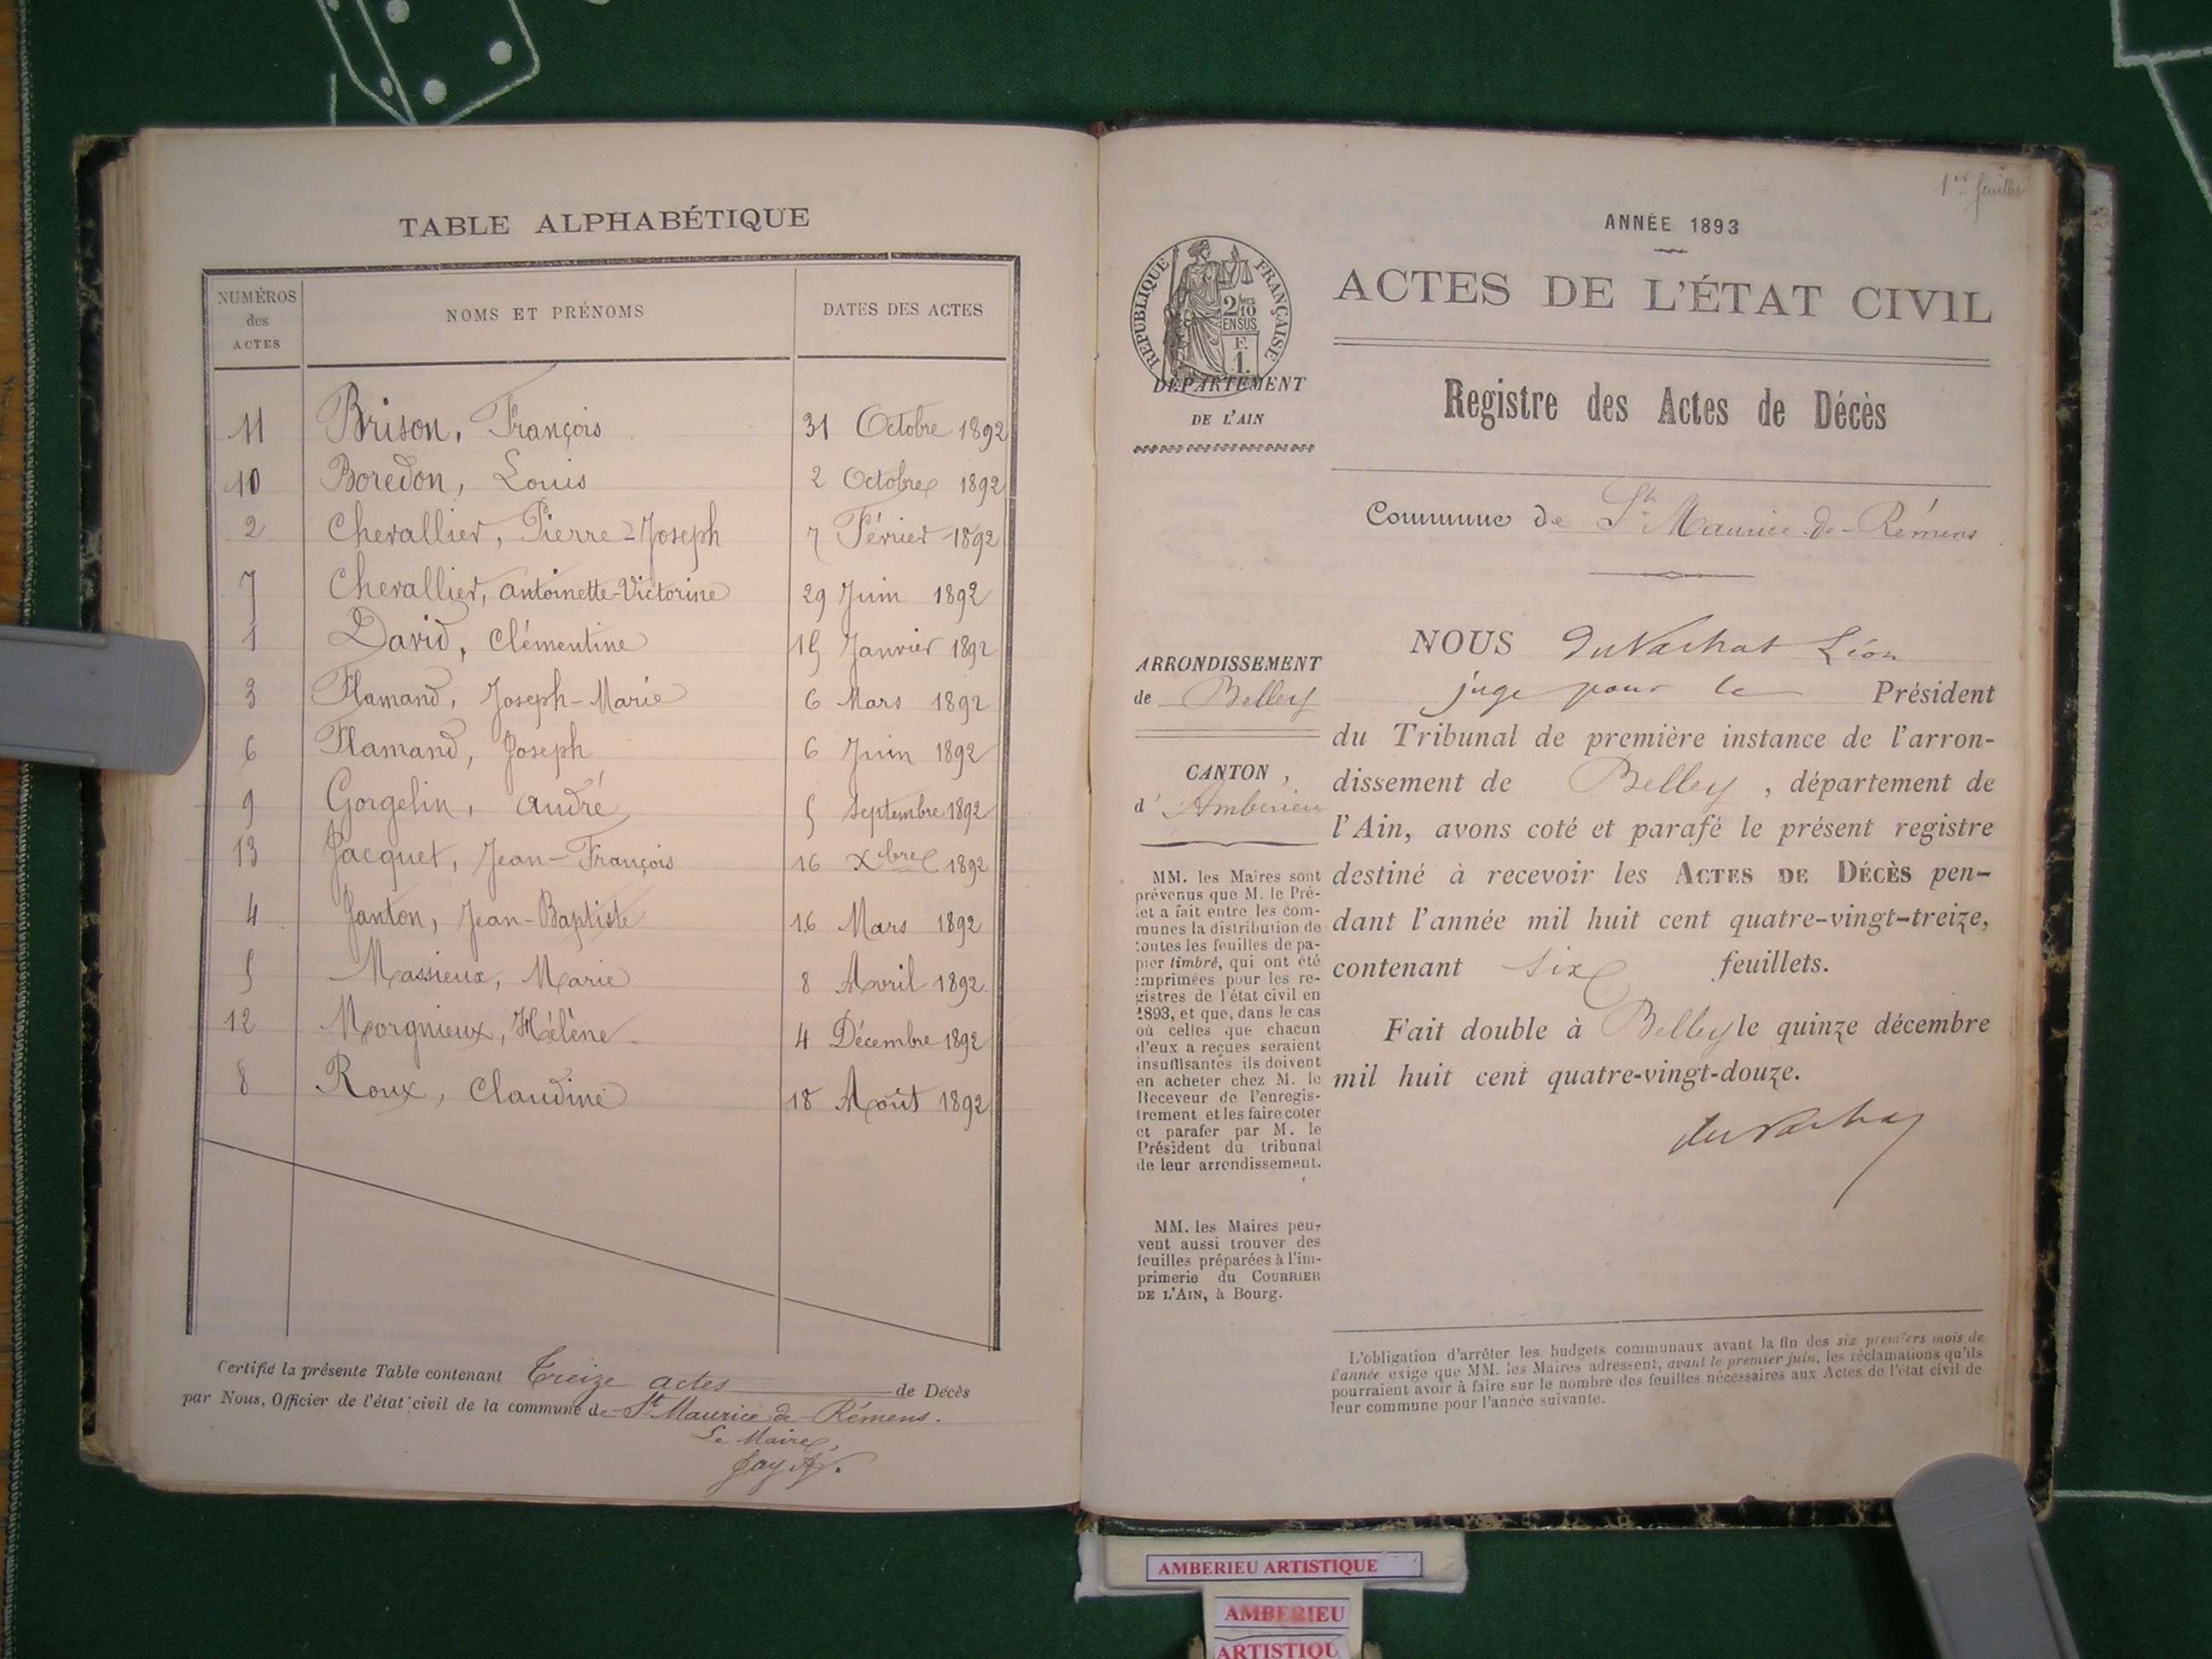 TABLE ALPHABÉTIQUE
NUMÉROS des ACTES | NOMS ET PRÉNOMS | DATES DES ACTES
11 Brison, François 31 Octobre 1892
10 Boredon, Louis 2 Octobre 1892
2 Chevallier, Pierre-Joseph 7 Février 1892
7 Chevallier, Antoinette-Victorine 29 Juin 1892
1 David, Clémentine 15 Janvier 1892
3 Flamand, Joseph-Marie 6 Mars 1892
6 Flamand, Joseph 6 Juin 1892
9 Gorgelin, André 5 Septembre 1892
13 Jacquet, Jean-François 16 Xbre 1892
4 Janton, Jean-Baptiste 16 Mars 1892
5 Massieux, Marie 8 Avril 1892
12 Morgnieux, Hélène 4 Décembre 1892
8 Roux, Claudine 18 Août 1892
Certifié la présente Table contenant Treize actes de Décès
par Nous, Officier de l'état civil de la commune de St Maurice de Rémens.
Le Maire,
Jay
feuillet
ANNÉE 1893
ACTES DE L'ÉTAT CIVIL
RÉPUBLIQUE FRANÇAISE
2/10 EN SUS
F. 1.
DÉPARTEMENT
DE L'AIN
Registre des Actes de Décès
Commune de St Maurice-de-Rémens
ARRONDISSEMENT
de Belley
CANTON,
d'Ambérieu
MM. les Maires sont
prévenus que M. le Pré-
fet a fait entre les com-
munes la distribution de
toutes les feuilles de pa-
pier timbré, qui ont été
imprimées pour les re-
gistres de l'état civil en
1893, et que, dans le cas
où celles que chacun
d'eux a reçues seraient
insuffisantes ils doivent
en acheter chez M. le
Receveur de l'enregis-
trement et les faire coter
et parafer par M. le
Président du tribunal
de leur arrondissement.
MM. les Maires peu-
vent aussi trouver des
feuilles préparées à l'im-
primerie du COURRIER
DE L'AIN, à Bourg.
NOUS du Vachat Léon
juge pour le Président
du Tribunal de première instance de l'arron-
dissement de Belley, département de
l'Ain, avons coté et parafé le présent registre
destiné à recevoir les ACTES DE DÉCÈS pen-
dant l'année mil huit cent quatre-vingt-treize,
contenant six feuillets.
Fait double à Belley le quinze décembre
mil huit cent quatre-vingt-douze.
du Vachat
L'obligation d'arrêter les budgets communaux avant la fin des six premiers mois de
l'année exige que MM. les Maires adressent, avant le premier juin, les réclamations qu'ils
pourraient avoir à faire sur le nombre des feuilles nécessaires aux Actes de l'état civil de
leur commune pour l'année suivante.
AMBERIEU ARTISTIQUE
AMBERIEU
ARTISTIQU